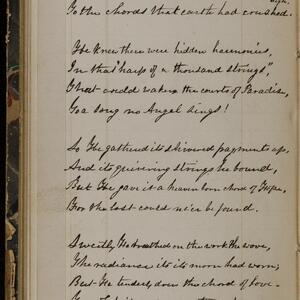 To the chords that earth had crushed.
He knew there were hidden harmonies,
In that "harp of a thousand strings",
That could waken the courts of Paradise,
To a song no Angel sings!
So He gathered its shivered fragments up,
And its quivering strings he bound,
But He gave it a heaven born chord of Hope,
For the lost could ne'er be found.
Sweetly He breathed on the work He wove,
The radiance its morn had worn;
But He tenderly drew the chord of love